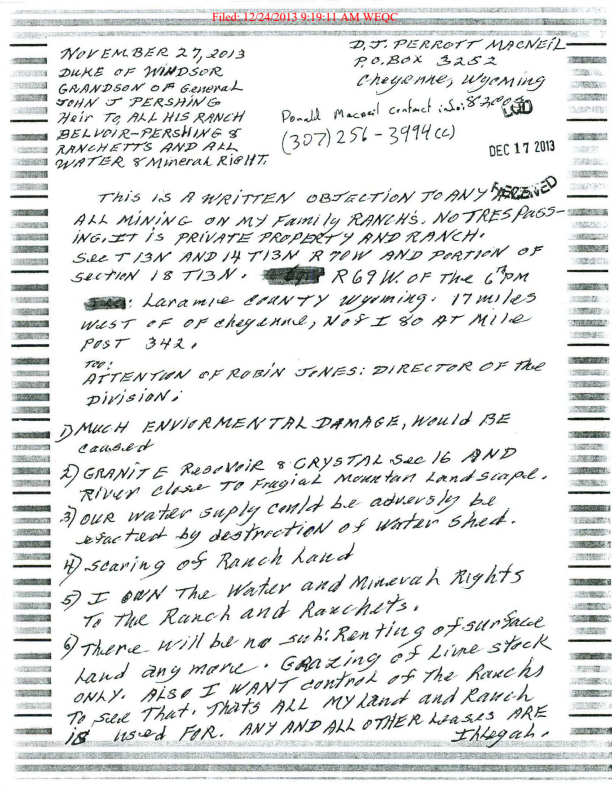 Filed: 12/24/2013 9:19:11 AM WEQC
NOVEMBER 27, 2013
DUKE OF WINDSOR
GRANDSON OF General
JOHN J PERSHING
Heir TO ALL HIS RANCH
BELVOIR-PERSHING &
RANCHETTS AND ALL
WATER & Mineral RIGHT.
D. J. PERROTT MACNEIL
P.O. BOX 3252
Cheyenne, Wyoming
82003
Donald Macneil contact info:
(307) 256-3994 (c)
LQD
DEC 17 2013
RECEIVED
THIS IS A WRITTEN OBJECTION TO ANY
ALL MINING ON MY Family RANCHS. NO TRESPASS-
ING. IT IS PRIVATE PROPERTY AND RANCH.
See T 13N AND 14 T13N R 70W AND PORTION OF
Section 18 T13N. R 69 W. OF The 6th PM
: Laramie COUNTY Wyoming. 17 miles
WEST OF OF Cheyenne, N of I 80 AT Mile
POST 342.
TOO:
ATTENTION OF ROBIN JONES: DIRECTOR OF the
DIVISION:
1) MUCH ENVIORMENTAL DAMAGE, Would BE
caused
2) GRANITE ResoVoir & CRYSTAL Sec 16 AND
River close To Fragial Mountan Landscape.
3) OUR water suply could be adversly be
efacted by destruction of water shed.
4) Scaring of Ranch Land
5) I OWN The Water and Minerah Rights
To The Ranch and Ranchets.
6) There will be no sub: Renting of surface
Land any more. Grazing of Live stock
ONLY. ALSO I WANT control of The Ranchs
To see That. Thats ALL MY Land and Ranch
is used FOR. ANY AND ALL OTHER Leases ARE
Ihlegah.